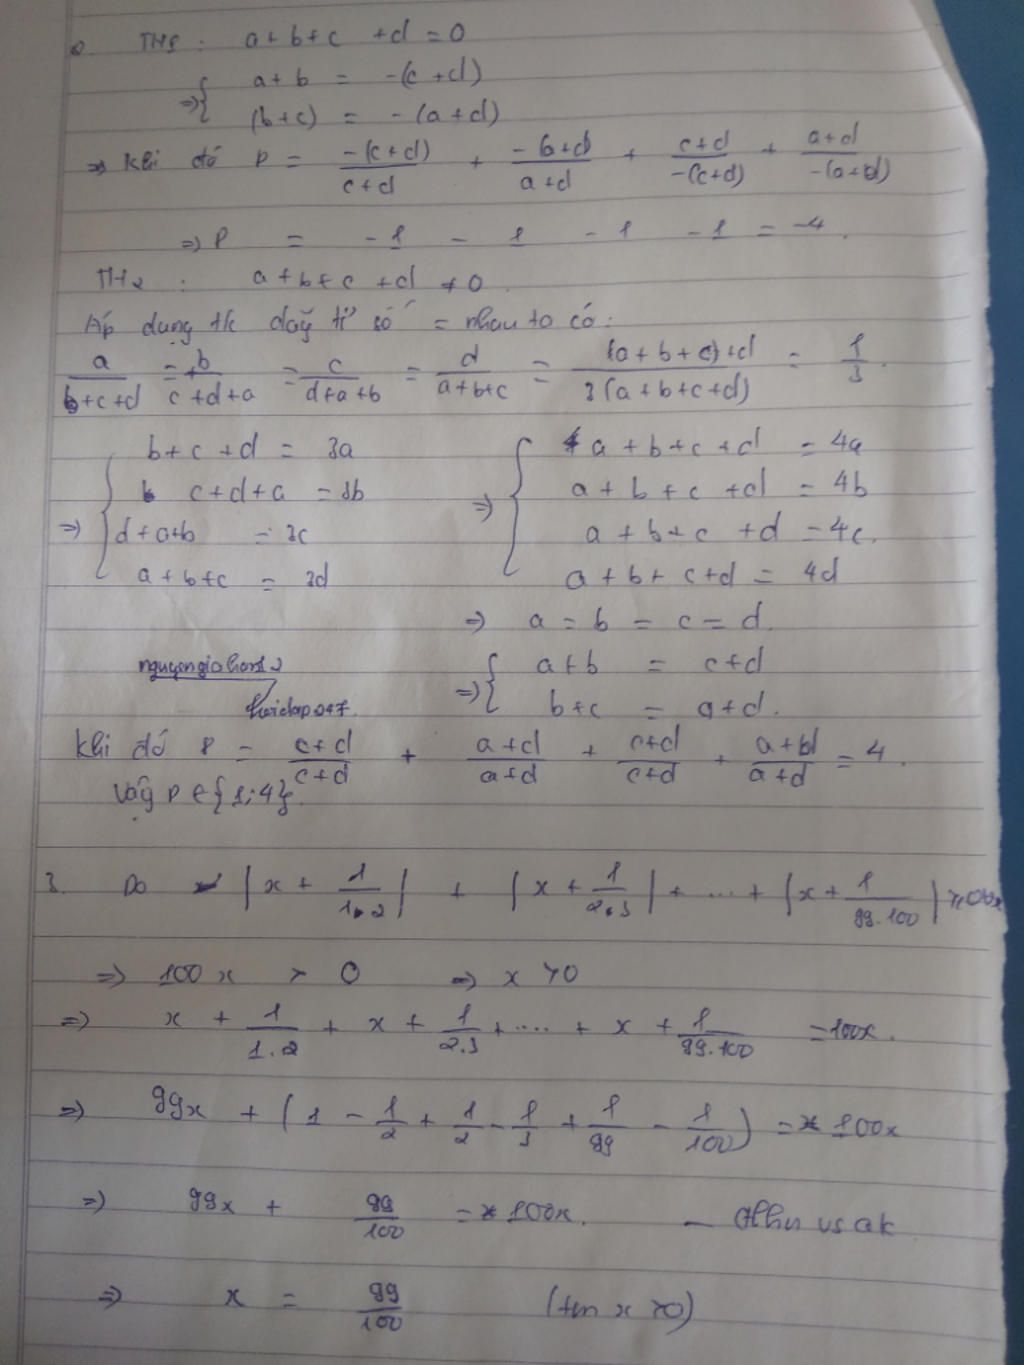 TH1: a+b+c+d=0
=> { a+b = -(c+d)
(b+c) = -(a+d)
=> Khi đó P = -(c+d)/(c+d) + -(b+c)/(a+d) + (c+d)/-(c+d) + (a+d)/-(a+d)
=> P = -1 - 1 - 1 - 1 = -4.
TH2: a+b+c+d ≠ 0
Áp dụng t/c dãy tỉ số = nhau ta có:
a/(b+c+d) = b/(c+d+a) = c/(d+a+b) = d/(a+b+c) = (a+b+c)+d/3(a+b+c+d) = 1/3.
b+c+d = 3a a+b+c+d = 4a
c+d+a = 3b a+b+c+d = 4b
=> { d+a+b = 3c => { a+b+c+d = 4c.
a+b+c = 3d a+b+c+d = 4d
=> a = b = c = d.
=> { a+b = c+d
b+c = a+d.
hoidap247.
Khi đó P = (c+d)/(c+d) + (a+d)/(a+d) + (c+d)/(c+d) + (a+d)/(a+d) = 4.
Vậy P ∈ {1;4}.
3. Do |x + 1/1.2| + |x + 1/2.3| + .... + |x + 1/99.100| ≥ 0 ∀x
=> 100x > 0 => x > 0
=> x + 1/1.2 + x + 1/2.3 + .... + x + 1/99.100 = 100x.
=> 99x + (1 - 1/2 + 1/2 - 1/3 + 1/99 - 1/100) = 100x
=> 99x + 99/100 = 100x.
=> x = 99/100 (tm x > 0)